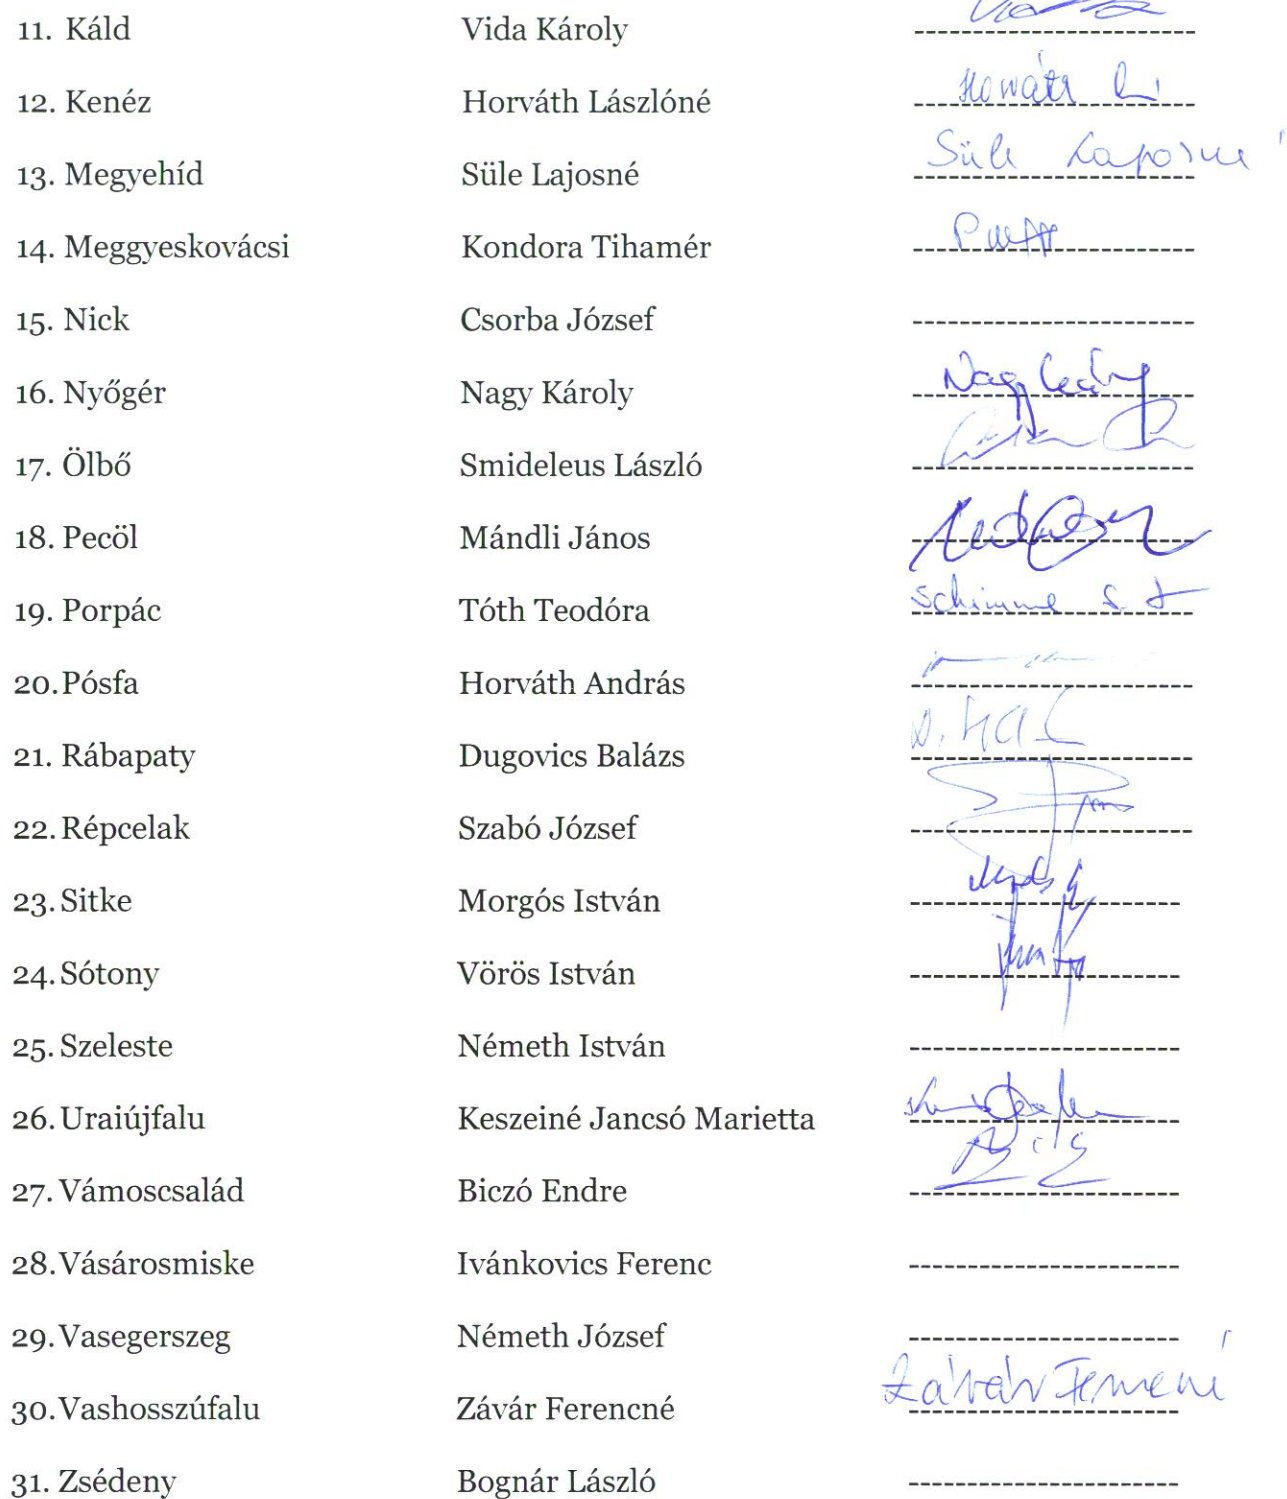 11. Káld Vida Károly
12. Kenéz Horváth Lászlóné
13. Megyehíd Süle Lajosné Süle Lajosné
14. Meggyeskovácsi Kondora Tihamér
15. Nick Csorba József
16. Nyőgér Nagy Károly Nagy Károly
17. Ölbő Smideleus László
18. Pecöl Mándli János
19. Porpác Tóth Teodóra
20. Pósfa Horváth András
21. Rábapaty Dugovics Balázs
22. Répcelak Szabó József
23. Sitke Morgós István
24. Sótony Vörös István
25. Szeleste Németh István
26. Uraiújfalu Keszeiné Jancsó Marietta
27. Vámoscsalád Biczó Endre
28. Vásárosmiske Ivánkovics Ferenc
29. Vasegerszeg Németh József
30. Vashosszúfalu Závár Ferencné Závár Ferencné
31. Zsédeny Bognár László